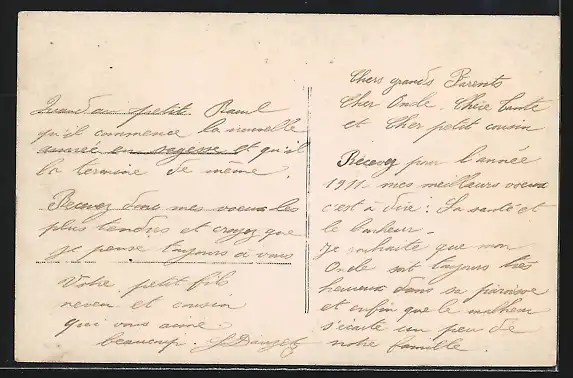 Chers grands Parents
Cher Oncle. Chère Tante
et Cher petit cousin
Recevez pour l'année
1911 mes meilleurs voeux
c'est à dire : La santé et
le bonheur -
Je souhaite que mon
Oncle soit toujours très
heureux dans sa paroisse
et enfin que le malheur
s'écarte un peu de
notre famille.
Quand au petit Raoul
qu'il commence la nouvelle
année en sagesse et qu'il
la termine de même.
Recevez donc mes voeux les
plus tendres et croyez que
je pense toujours à vous
Votre petit fils
neveu et cousin
qui vous aime
beaucoup.